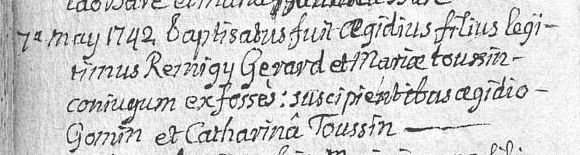 7a may 1742 baptisatus fuit Ægidius filius legi-
timus Remigy Gerard et Mariæ toussin-
coniugum ex fosses: suscipientibus ægidio-
Gomin et Catharinâ Toussin